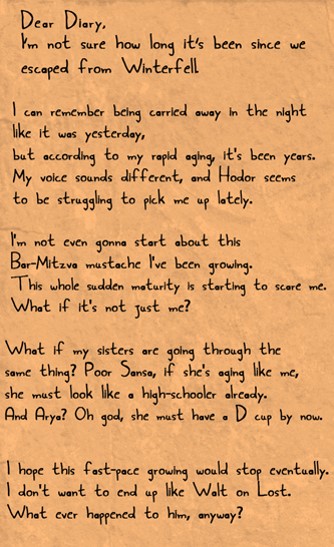 Dear Diary,
I'm not sure how long it's been since we
escaped from Winterfell
I can remember being carried away in the night
like it was yesterday,
but according to my rapid aging, it's been years.
My voice sounds different, and Hodor seems
to be struggling to pick me up lately.
I'm not even gonna start about this
Bar-Mitzva mustache I've been growing.
This whole sudden maturity is starting to scare me.
What if it's not just me?
What if my sisters are going through the
same thing? Poor Sansa, if she's aging like me,
she must look like a high-schooler already.
And Arya? Oh god, she must have a D cup by now.
I hope this fast-pace growing would stop eventually.
I don't want to end up like Walt on Lost.
What ever happened to him, anyway?